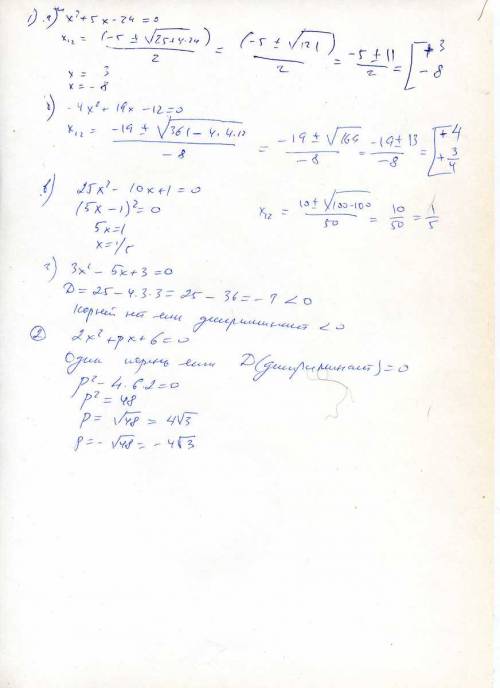 1) а) x² + 5x - 24 = 0
x₁₂ = (-5 ± √25+4·24) / 2 = (-5 ± √121) / 2 = -5 ± 11 / 2 = [ +3 -8
x = 3
x = -8
-4x² + 19x - 12 = 0
x₁₂ = -19 ± √361 - 4·4·12 / -8 = -19 ± √169 / -8 = -19 ± 13 / -8 = [ +4 +3/4
в) 25x² - 10x + 1 = 0
(5x - 1)² = 0 x₁₂ = 10 ± √100-100 / 50 = 10/50 = 1/5
5x = 1
x = 1/5
г) 3x² - 5x + 3 = 0
D = 25 - 4·3·3 = 25 - 36 = - < 0
Корней нет если дискриминант < 0
② 2x² + px + 6 = 0
Один корень если D (дискриминант) = 0
p² - 4·6·2 = 0
p² = 48
p = √48 = 4√3
p = -√48 = -4√3